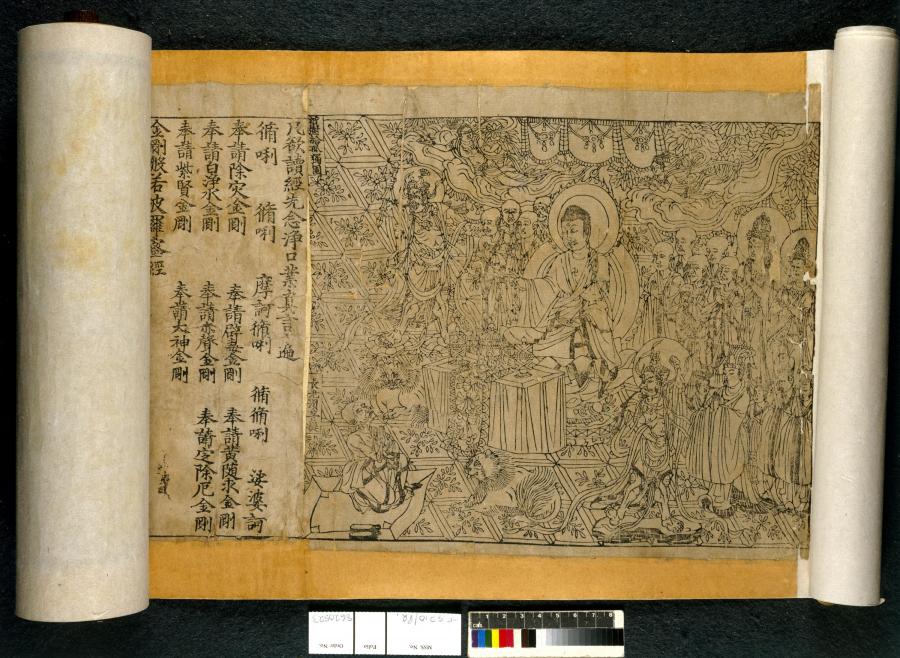 祇樹給孤獨園
長老須菩提
凡欲讀經先念淨口業真言一遍
脩唎 脩唎 摩訶脩唎 脩脩唎 娑婆訶
奉請除灾金剛 奉請辟毒金剛 奉請黃隨求金剛
奉請白淨水金剛 奉請赤聲金剛 奉請定除厄金剛
奉請紫賢金剛 奉請大神金剛
金剛般若波羅蜜經
MSS. No.
Folio
Order No.
1 2 3 4 5 6 7 8